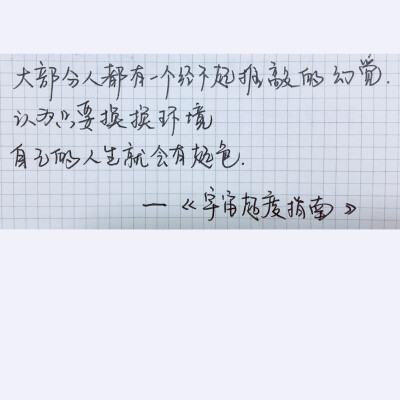 大部分人都有一个经不起推敲的幻觉.
认为只要换换环境
自己的人生就会有起色.
—《宇宙超度指南》